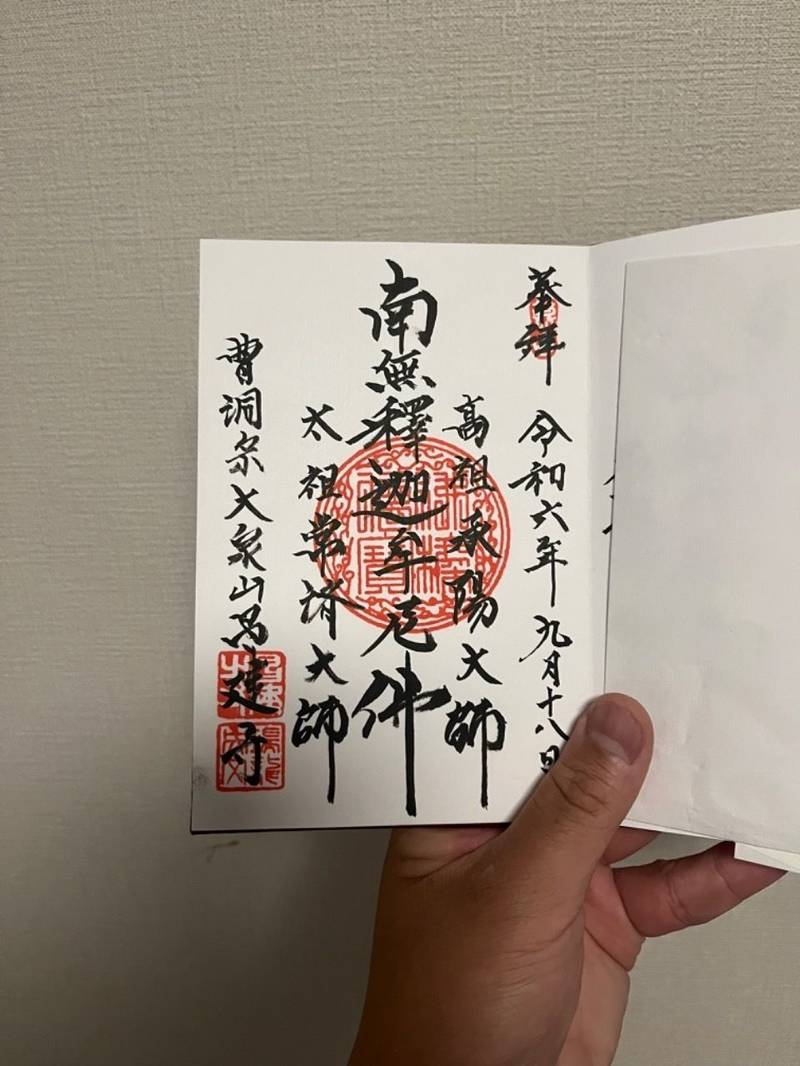 奉拝 令和六年九月十八日
高祖承陽大師
南無釋迦牟尼佛
太祖常済大師
曹洞宗大泉山昌建寺